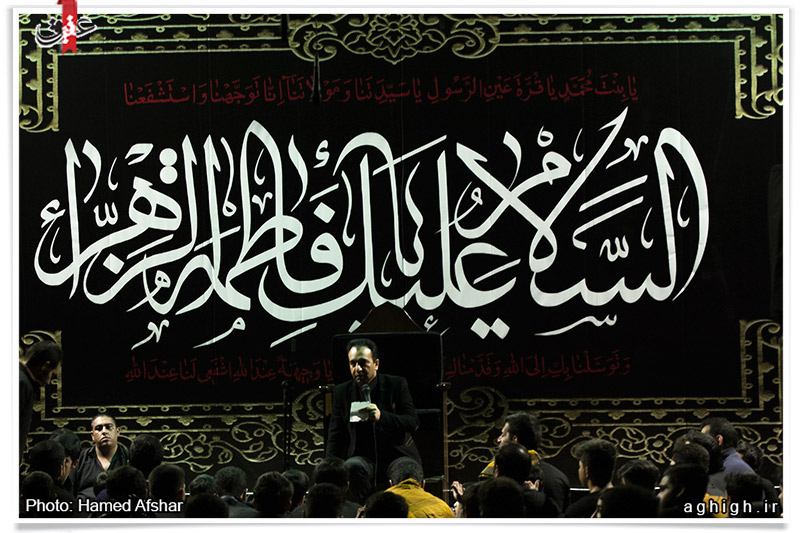 عقیق
یا بنت محمد یا قرة عین الرسول یا سیدتنا و مولاتنا انا توجهنا و استشفعنا
السَّلامُ عليكِ يا فاطمة الزهراء
وَ تَوَسَّلنا بِكِ اِلَى اللهِ وَ قَدَّمناكِ یا وَجیهَةً عِندَ اللهِ اِشفَعی لَنا عِندَ اللهِ
Photo: Hamed Afshar
aghigh.ir